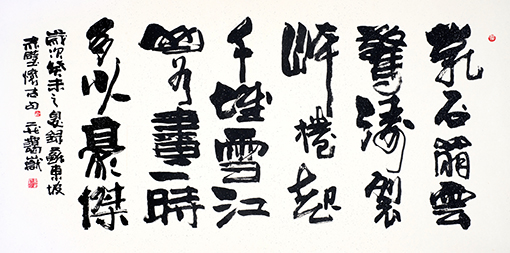 亂石崩雲
驚濤裂
岸捲起
千堆雪江
山如畫一時
多少豪傑
歲次癸未之夏録蘇東坡
赤壁懷古句